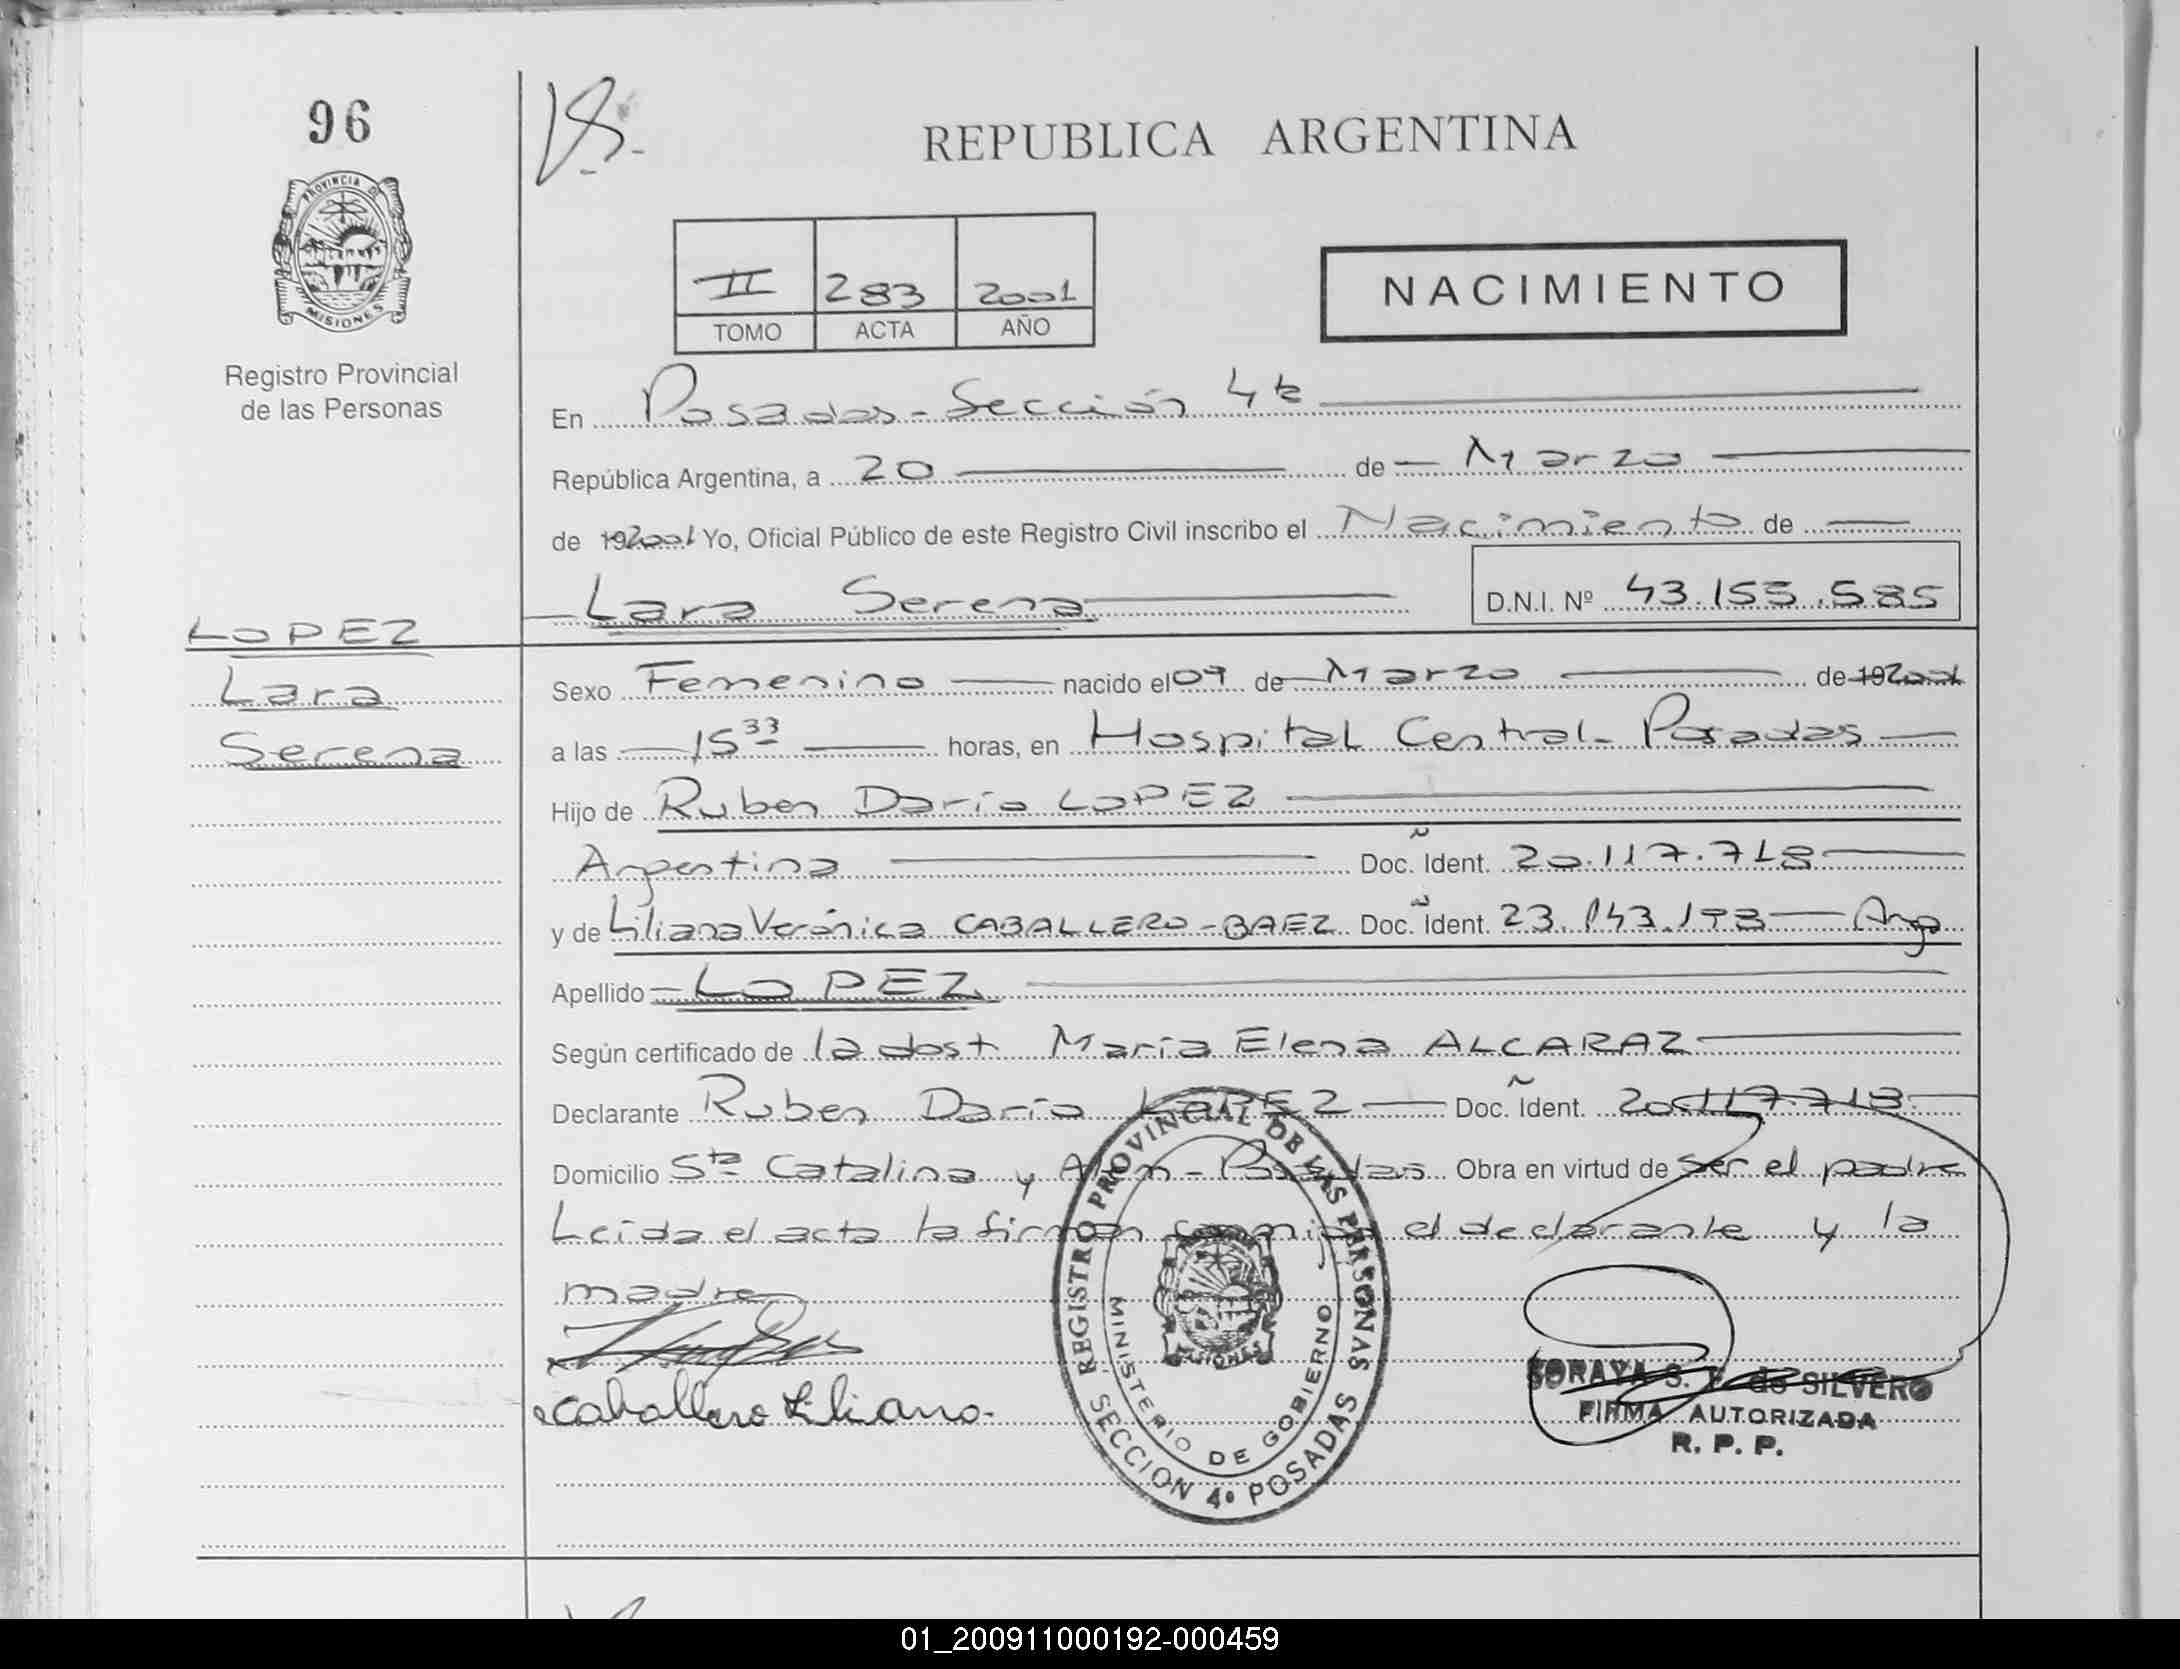 96
PROVINCIA DE
MISIONES
Registro Provincial
de las Personas
LOPEZ
Lara
Serena
REPUBLICA ARGENTINA
II 283 2001
TOMO ACTA AÑO
NACIMIENTO
En Posadas - Sección 4ta
República Argentina, a 20 de Marzo
de 192001 Yo, Oficial Público de este Registro Civil inscribo el Nacimiento de
Lara Serena D.N.I. Nº 43.155.585
Sexo Femenino nacido el 07 de Marzo de 192001
a las 15 33 horas, en Hospital Central - Posadas
Hijo de Ruben Darío LOPEZ
Argentina Doc. Ident. 20.117.718
y de Liliana Verónica CABALLERO - BAEZ Doc. Ident. 23.143.193 Arg
Apellido LOPEZ
Según certificado de la obst María Elena ALCARAZ
Declarante Ruben Darío LOPEZ Doc. Ident. 20.117.718
Domicilio Sta Catalina y - Posadas Obra en virtud de ser el padre
Leída el acta la firman conmigo el declarante y la
madre
Caballero Liliana
REGISTRO PROVINCIAL DE LAS PERSONAS
SECCION 4º POSADAS
MINISTERIO DE GOBIERNO
MISIONES
SORAYA S. F. de SILVERO
FIRMA AUTORIZADA
R. P. P.
01_200911000192-000459